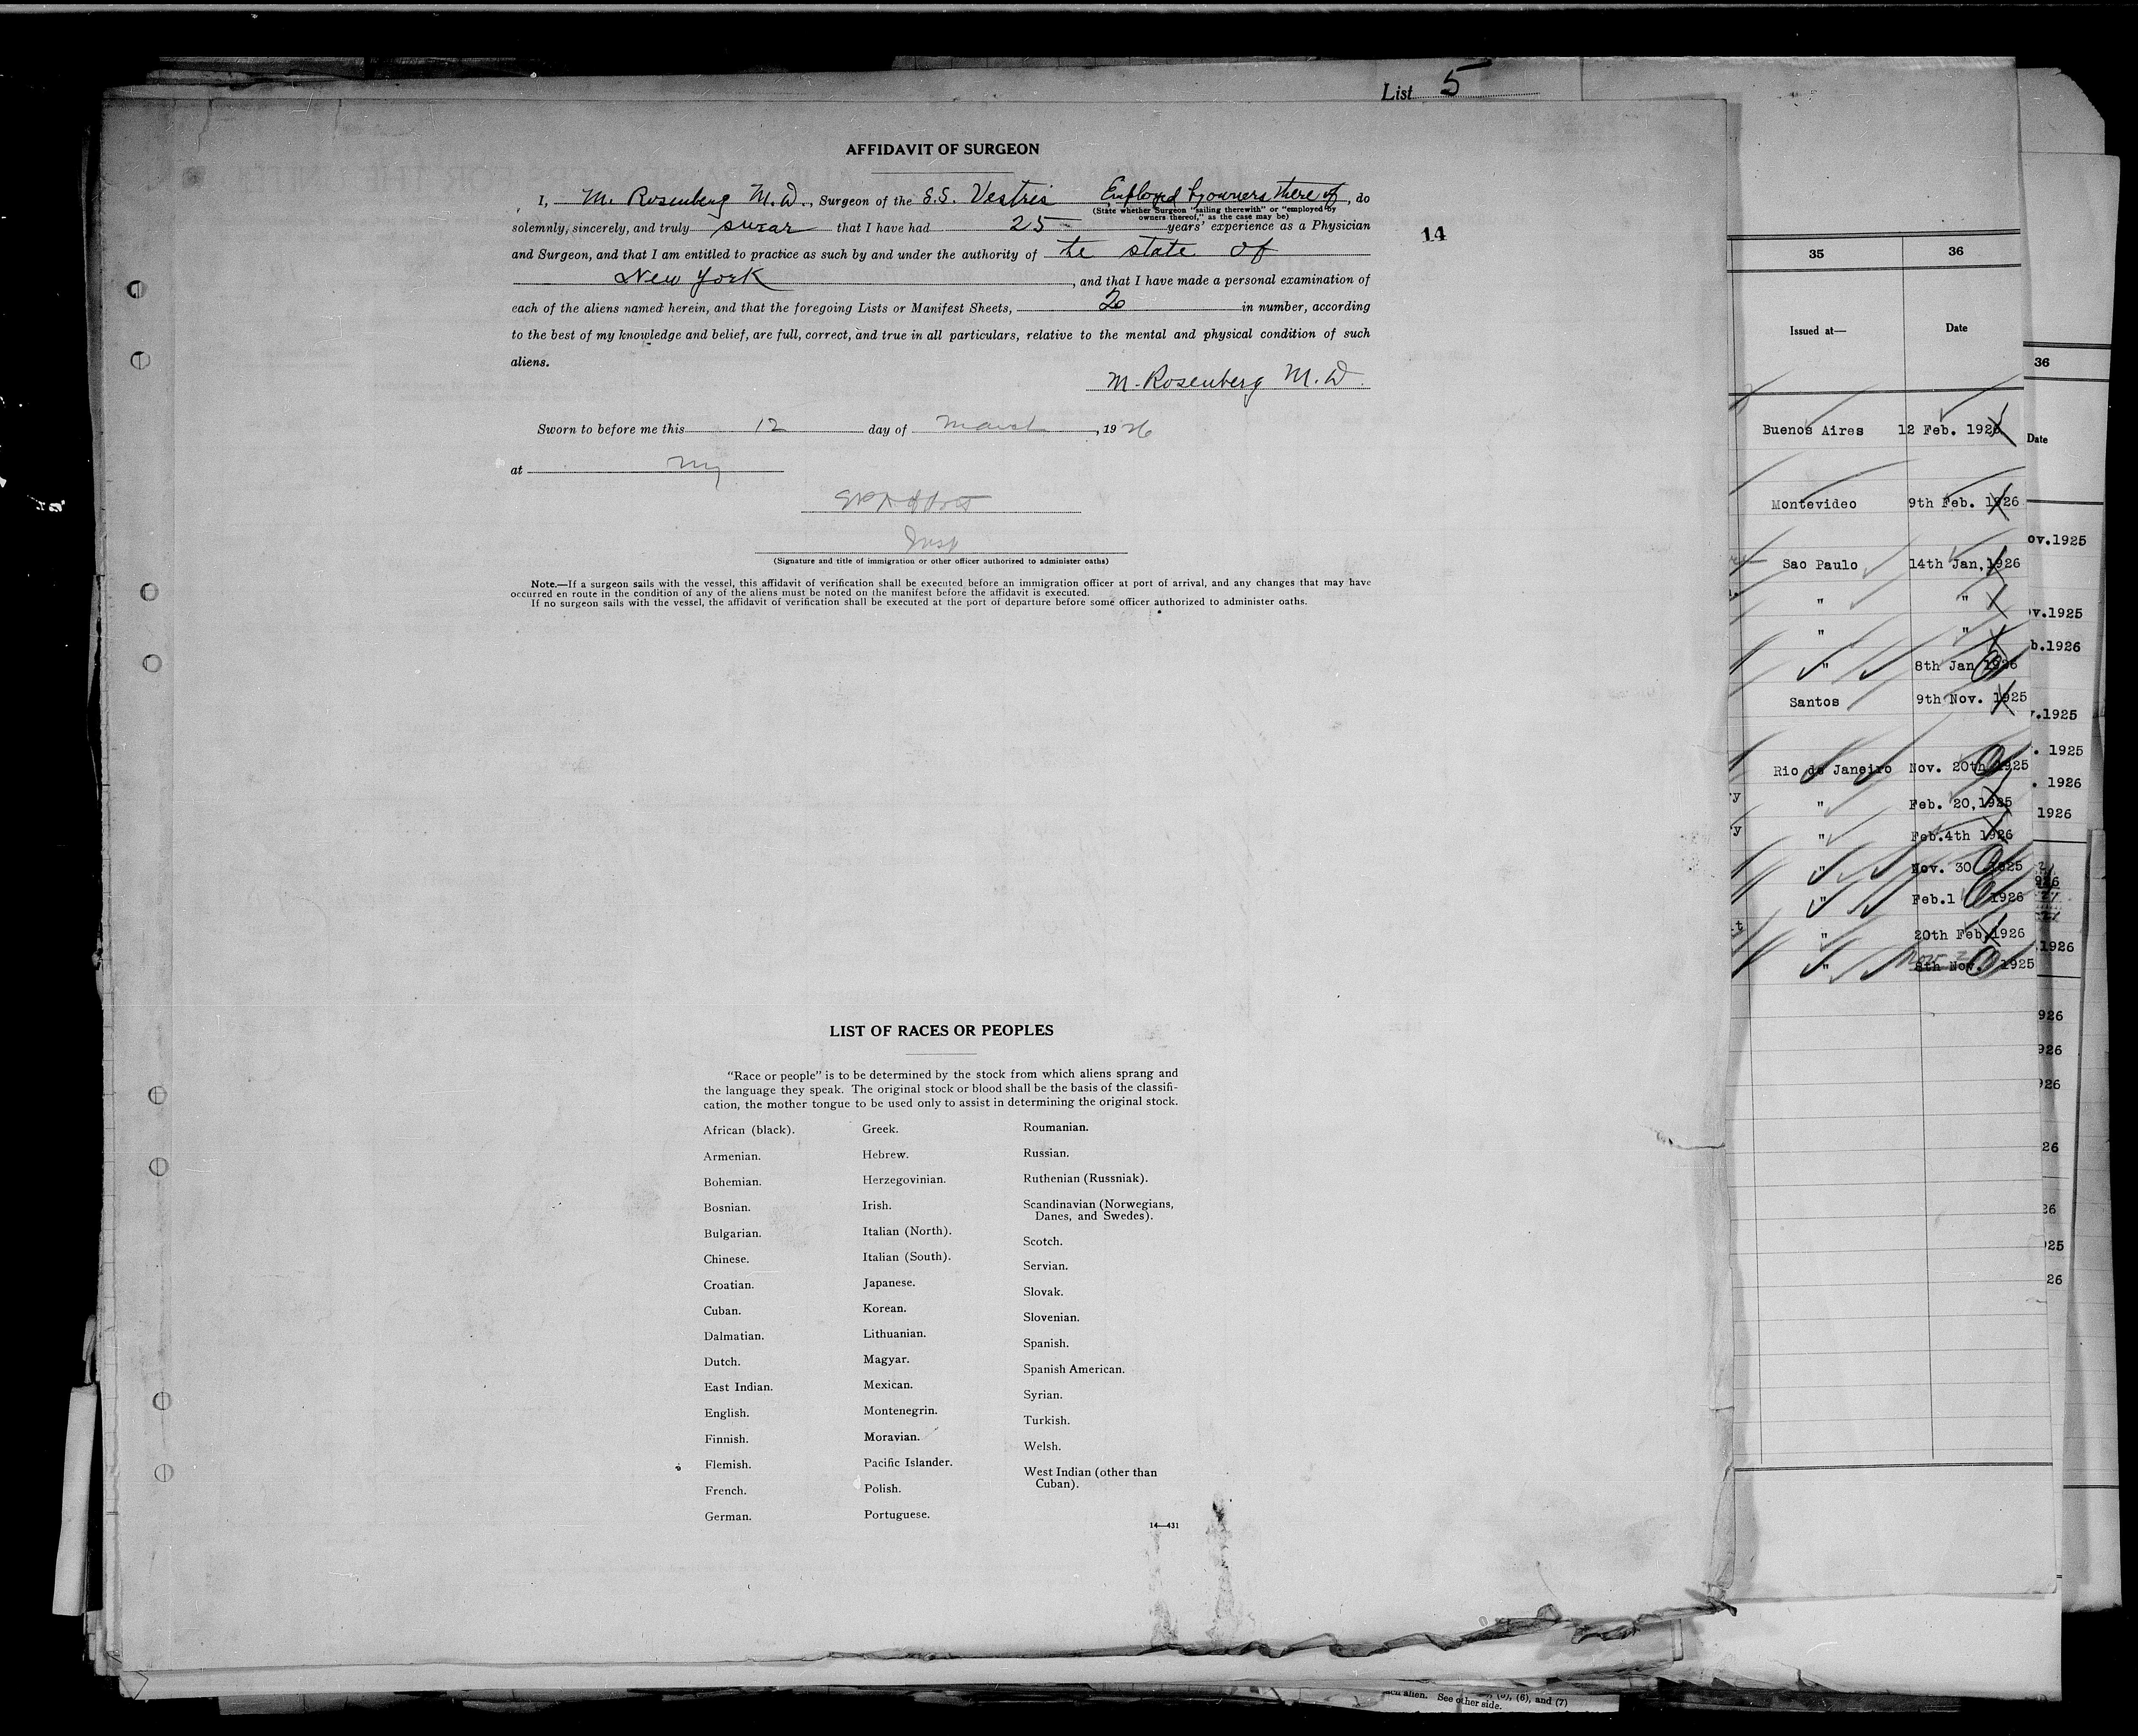 List 5
AFFIDAVIT OF SURGEON
I, M. Rosenberg M.D., Surgeon of the S.S. Vestris Employed by owners there of, do
(State whether Surgeon "sailing therewith" or "employed by
owners thereof," as the case may be)
solemnly, sincerely, and truly swear that I have had 25 years' experience as a Physician
14
and Surgeon, and that I am entitled to practice as such by and under the authority of the state of
New York, and that I have made a personal examination of
each of the aliens named herein, and that the foregoing Lists or Manifest Sheets, in number, according
to the best of my knowledge and belief, are full, correct, and true in all particulars, relative to the mental and physical condition of such
aliens.
M. Rosenberg M.D.
Sworn to before me this 12 day of March, 1926
at NY
Insp
(Signature and title of immigration or other officer authorized to administer oaths)
Note.—If a surgeon sails with the vessel, this affidavit of verification shall be executed before an immigration officer at port of arrival, and any changes that may have
occurred en route in the condition of any of the aliens must be noted on the manifest before the affidavit is executed.
If no surgeon sails with the vessel, the affidavit of verification shall be executed at the port of departure before some officer authorized to administer oaths.
LIST OF RACES OR PEOPLES
"Race or people" is to be determined by the stock from which aliens sprang and
the language they speak. The original stock or blood shall be the basis of the classifi-
cation, the mother tongue to be used only to assist in determining the original stock.
African (black).
Armenian.
Bohemian.
Bosnian.
Bulgarian.
Chinese.
Croatian.
Cuban.
Dalmatian.
Dutch.
East Indian.
English.
Finnish.
Flemish.
French.
German.
Greek.
Hebrew.
Herzegovinian.
Irish.
Italian (North).
Italian (South).
Japanese.
Korean.
Lithuanian.
Magyar.
Mexican.
Montenegrin.
Moravian.
Pacific Islander.
Polish.
Portuguese.
Roumanian.
Russian.
Ruthenian (Russniak).
Scandinavian (Norwegians,
Danes, and Swedes).
Scotch.
Servian.
Slovak.
Slovenian.
Spanish.
Spanish American.
Syrian.
Turkish.
Welsh.
West Indian (other than
Cuban).
14—431
35 36
Issued at— Date
Buenos Aires 12 Feb. 1926
Montevideo 9th Feb. 1926
Sao Paulo 14th Jan, 1926
" "
" "
" 8th Jan 1926
Santos 9th Nov. 1925
Rio de Janeiro Nov. 20th 1925
" Feb. 20, 1925
" Feb.4th 1926
" Nov. 30 1925
" Feb.1 1926
" 20th Feb, 1926
" 8th Nov. 1925
36
Date
ov.1925
v.1925
b.1926
.1925
. 1925
. 1926
1926
926
.1926
926
926
26
26
26
25
26
alien. See other side. (6), and (7)